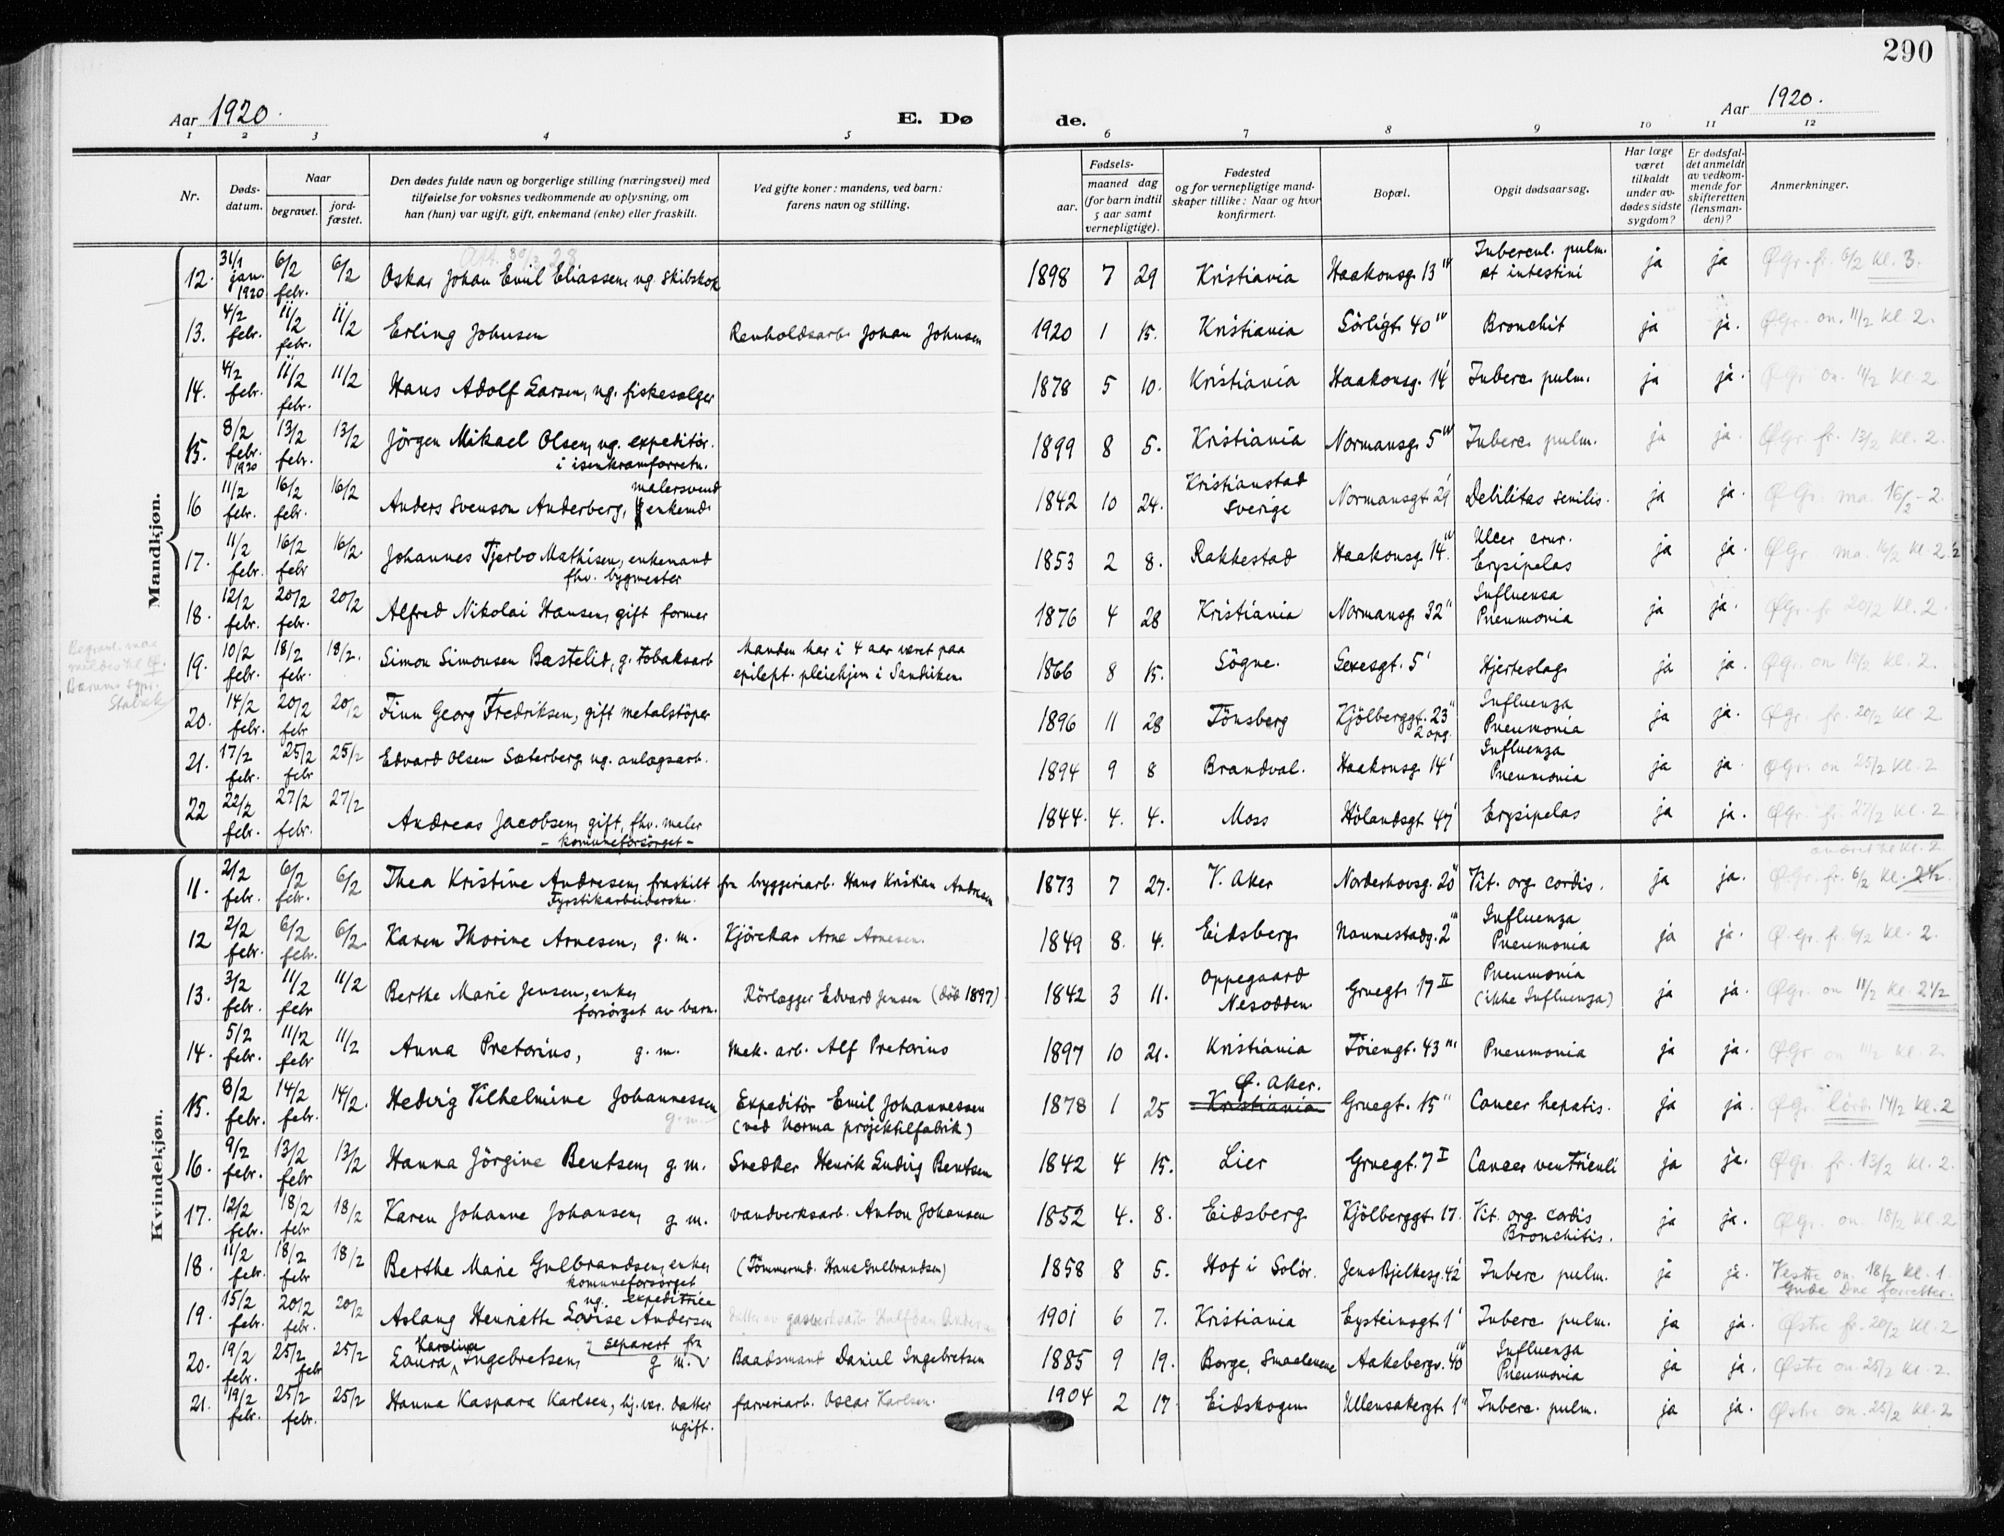 290
Aar 1920. E. Døde. Aar 1920.
1 2 3 4 5 6 7 8 9 10 11 12
Nr. | Dødsdatum. | Naar begravet. | jordfæstet. | Den dødes fulde navn og borgerlige stilling (næringsvei) med tilføielse for voksnes vedkommende av oplysning, om han (hun) var ugift, gift, enkemand (enke) eller fraskilt. | Ved gifte koner: mandens, ved barn: farens navn og stilling. | Fødsels- aar. | maaned dag (for barn indtil 5 aar samt vernepligtige). | Fødested og for vernepligtige mandskaper tillike: Naar og hvor konfirmert. | Bopæl. | Opgit dødsaarsag. | Har læge været tilkaldt under avdødes sidste sygdom? | Er dødsfaldet anmeldt av vedkommende for skifteretten (lensmanden)? | Anmerkninger.
Mandkjøn.
12. 31/1 jan. 1920 6/2 febr. 6/2 Oskar Johan Emil Eliassen, ug. skibskok 1898 7 29 Kristiania Haakonsg. 13 Tubercul. pulm. et intestini ja ja ØGr. fr. 6/2 kl. 3.
13. 4/2 febr. 11/2 febr. 11/2 Erling Johnsen Renholdsarb. Johan Johnsen 1920 1 15. Kristiania Sörligt. 40 IV Bronchit ja ja. ØGr. on. 11/2 kl. 2.
14. 4/2 febr. 11/2 febr. 11/2 Hans Adolf Larsen, ug. fiskesælger 1878 5 10. Kristiania Haakonsg. 14 Tuberc. pulm. ja ja. ØGr. on. 11/2 kl. 2
15. 8/2 febr. 1920 13/2 febr. 13/2 Jörgen Mikael Olsen, ug. expeditör. i isenkramforretn. 1899 8 5. Kristiania Normansg. 5 IV Tuberc. pulm. ja ja. ØGr. fr. 13/2 kl. 2.
16 11/2 febr. 16/2 febr. 16/2 Anders Svenson Anderberg, malersvend enkemd. 1842 10 24. Kristianstad Sverige Normansgt. 29 Debilitas senilis. ja ja. ØGr. ma. 16/2 - 2.
17. 11/2 febr. 16/2 febr 16/2. Johannes Tjerbo Mathisen, enkemand fhv. bygmester 1853 2 8. Rakkestad Haakonsg. 14 Ulcer crur. Erysipelas ja ja. ØGr. ma. 16/2 kl. 2 1/2
18. 12/2 febr. 20/2 febr. 20/2 Alfred Nikolai Hansen, gift former 1876 4 28 Kristiania Normansg. 32 II Influensa Pneumonia ja ja. ØGr. fr 20/2 kl. 2.
19. 10/2 febr. 18/2 febr. 18/2. Simon Simonsen Bastelid, g. tobaksarb Manden har i 4 aar været paa epilept. pleiehjem i Sandviken 1866 8 15. Sögne. Gexesgt. 5 I Hjerteslag ja ja. ØGr. on 18/2 kl. 2.
20. 14/2 febr. 20/2 febr 20/2 Finn Georg Fredriksen, gift metalstöper 1896 11 28 Tönsberg Kjölberggt. 23 II 2 opg. Influenza Pneumonia ja ja. Øgr. fr. 20/2 kl. 2
21. 17/2 febr. 25/2 febr 25/2 Edvard Olsen Sæterberg, ug. anlægsarb. 1894 9 8 Brandval. Haakonsg. 14 I Influenza Pneumonia ja ja. ØGr. on 25/2 kl. 2
22 22/2 febr. 27/2 febr. 27/2 Andreas Jacobsen, gift, fhv. maler - komuneforsörget - 1844. 4. 4. Moss Hölandsgt. 47 I Erysipelas ja ja. ØGr. fr. 27/2 kl. 2
Kvindekjøn.
11. 2/2 febr. 6/2 febr. 6/2 Thea Kristine Andresen, fraskilt fra bryggeriarb. Hans Kristian Andresen Fyrstikarbeiderske. 1873 7 27. V. Aker Norderhovsg. 20 II Vit. org. cordis. ja ja. ØGr. fr. 6/2 kl. 2 1/2.
12 2/2 febr. 6/2 febr. 6/2. Karen Thorine Arnesen, g. m. Kjörekar Arne Arnesen. 1849 8. 4. Eidsberg Nannestadg. 2 Influenza Pneumonia ja ja. ØGr. fr. 6/2 kl. 2.
13. 3/2 febr. 11/2 febr 11/2 Berthe Marie Jensen, enke, forsörget av barn. Rörlægger Edvard Jensen (död 1897) 1842 3 11. Oppegaard Nesodden Gruegt. 17 II Pneumonia (ikke Influenza) ja ja. ØGr. on 11/2 kl. 2 1/2
14. 5/2 febr. 11/2 febr 11/2 Anna Pretorius, g. m. Mek. arb. Alf Pretorius 1897 10 21. Kristiania Töiengt. 43 III Pneumonia ja ja. ØGr on 11/2 kl. 2.
15. 8/2 febr. 14/2 febr. 14/2. Hedvig Vilhelmine Johannessen g. m. Expeditör Emil Johannessen (ved Norma projektilfabrik) 1878 1 25 Ø. Aker. Kristiania Gruegt. 15 II Cancer hepatis. ja ja ØGr. Lörd. 14/2 kl. 2
16. 9/2 febr. 13/2 febr 13/2 Hanna Jörgine Bentsen, g. m. Snedker Henrik Ludvig Bentsen 1842 4 15. Lier Gruegt. 7 I Cancer ventriculi ja ja. ØGr. fr. 13/2 kl. 2.
17. 12/2 febr. 18/2 febr 18/2 Karen Johanne Johansen, g. m. vandverksarb. Anton Johansen 1852 4. 8. Eidsberg Kjölberggt. 17. Vit. org. cordis Bronchitis. ja ja. ØGr. on. 18/2 kl. 2
18. 11/2 febr. 18/2 febr 18/2 Berthe Marie Gulbrandsen, enke, komuneforsörget (Tömmermd. Hans Gulbrandsen) 1858 8 5. Hof i Solör. Jens Bjelkesg. 42 Tuberc. pulm. ja ja. Vestre on. 18/2 kl. 1 Gude Due forretter.
19. 15/2 febr. 20/2 febr. 20/2 Aslaug Henriette Lovise Andersen ug. expeditrice datter av gasverksarb. Halfdan Andersen 1901 6 7. Kristiania Eysteinsgt. 1 I Tuberc. pulm. ja ja. Østre fr. 20/2 kl. 2
20. 19/2 febr. 25/2 febr 25/2 Laura Karoline Ingebretsen, separert fra g. m. Baadsmand Daniel Ingebretsen 1885 9 19. Borge, Smaalenene Aakebergv. 40 IV Influenza Pneumonia ja ja. Østre on. 25/2 kl. 2.
21. 19/2 febr. 25/2 febr. 25/2 Hanna Kaspara Karlsen, hj. vær. datter ugift. farveriarb. Oscar Karlsen. 1904 2 17. Eidskogen Ullensakergt. 1 II Tuberc. pulm. ja ja. Østre on. 25/2 kl. 2